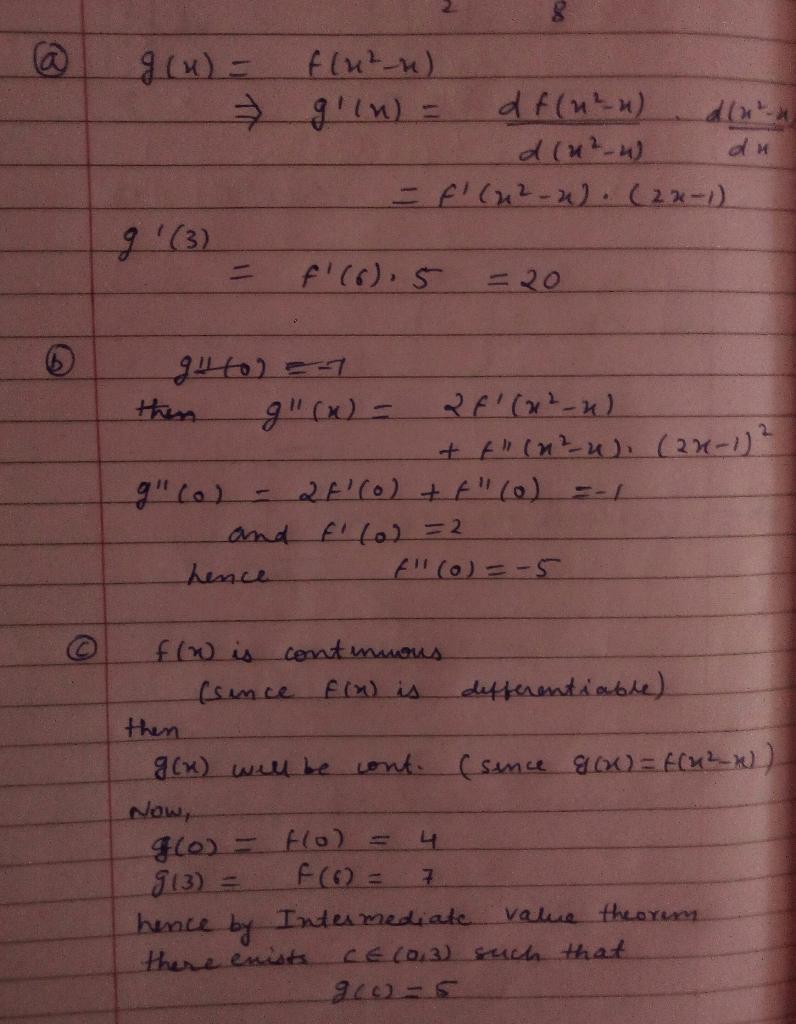 2 8
ⓐ g(x) = f(x²-x)
⇒ g'(x) = d f(x²-x) / d(x²-x) · d(x²-x / dx
= f'(x²-x) · (2x-1)
g'(3)
= f'(6) · 5 = 20
ⓑ g''(0) = -1
then g''(x) = 2f'(x²-x)
+ f''(x²-x) · (2x-1)²
g''(0) = 2f'(0) + f''(0) = -1
and f'(0) = 2
hence f''(0) = -5
ⓒ f(x) is continuous
(since f(x) is differentiable)
then
g(x) will be cont. (since g(x) = f(x²-x))
Now,
g(0) = f(0) = 4
g(3) = f(6) = 7
hence by Intermediate value theorem
there exists c ∈ (0,3) such that
g(c) = 5